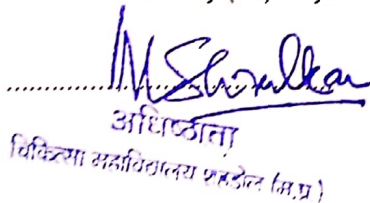 अधिष्ठाता
चिकित्सा महाविद्यालय शहडोल (म.प्र)